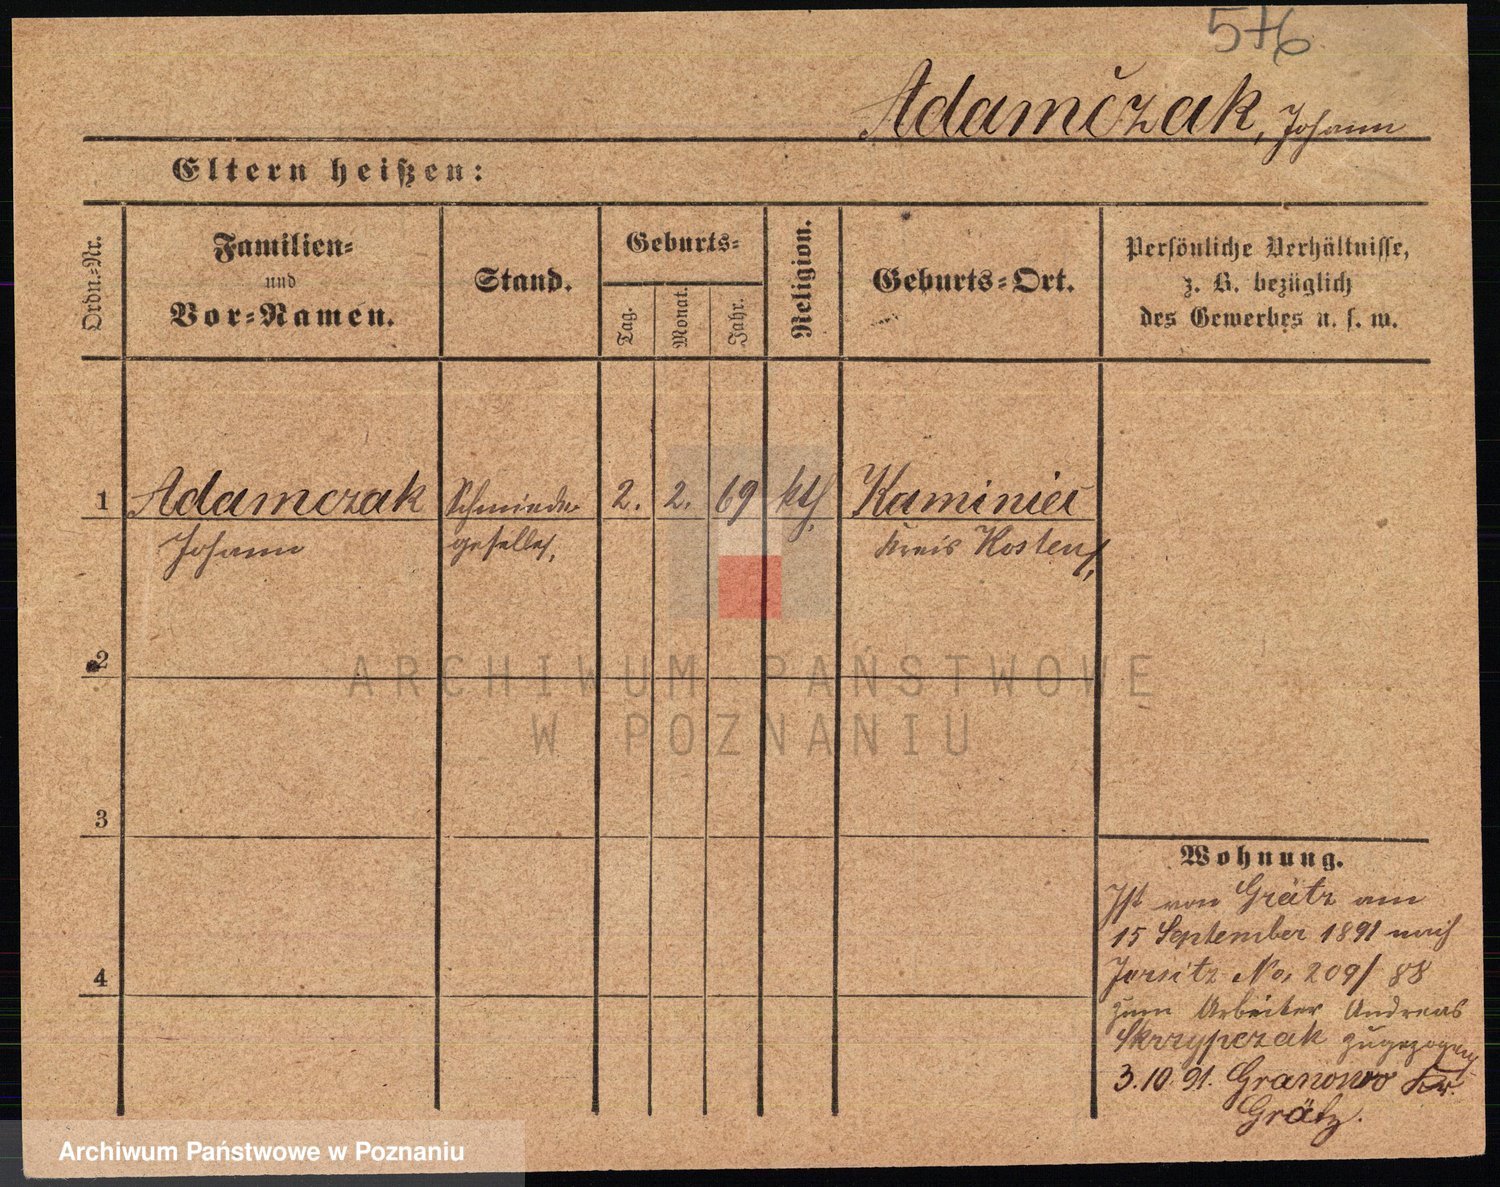 576
Adamčzak, Johann
Eltern heißen:
Ordn.-Nr.
Familien-
und
Vor-Namen.
Stand.
Geburts-
Tag.
Monat.
Jahr.
Religion.
Geburts-Ort.
Persönliche Verhältnisse,
z. B. bezüglich
des Gewerbes u. s. w.
1 Adamczak Schmiede- 2. 2. 69 kth. Kaminiec
Johann geselle, Kreis Kosten,
2
3
4
Wohnung.
Ist von Grätz am
15 September 1891 nach
Jersitz No. 209/88
zum Arbeiter Andreas
Skrzypczak zugezogen
3.10.91. Granowo Kr.
Grätz.
ARCHIWUM PAŃSTWOWE
W POZNANIU
Archiwum Państwowe w Poznaniu